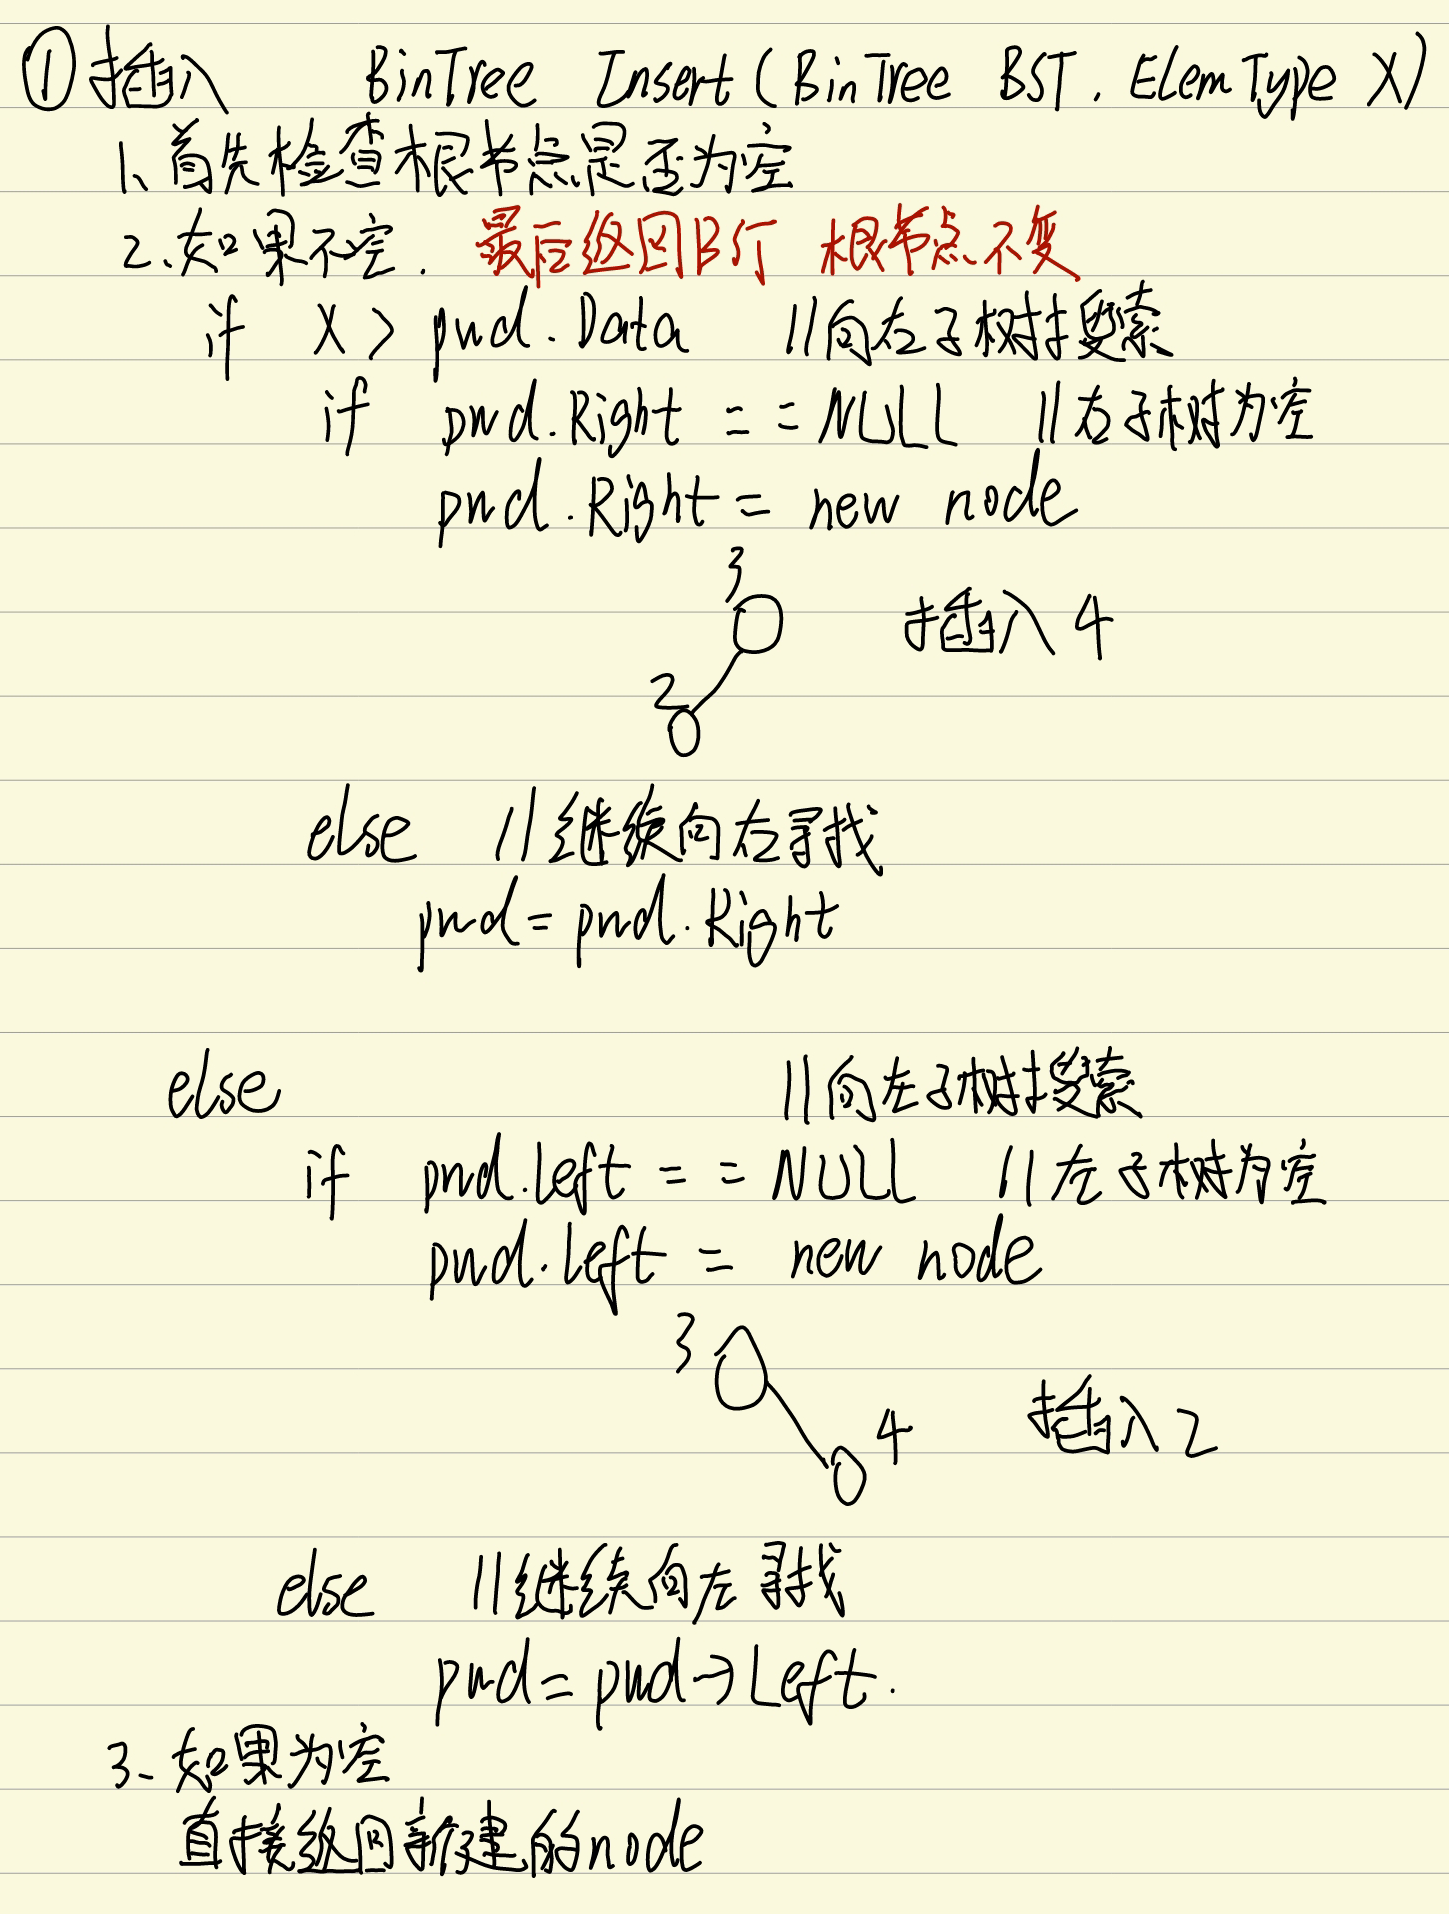 ①插入 BinTree Insert(BinTree BST, ElemType X)
1、首先检查根节点是否为空
2、如果不空. 最后返回BST 根节点不变
if X > pwd.Data //向右子树搜索
if pwd.Right == NULL //右子树为空
pwd.Right = new node
3
插入4
2
else //继续向右寻找
pwd = pwd.Right
else //向左子树搜索
if pwd.left == NULL //左子树为空
pwd.left = new node
3
4 插入2
else //继续向左寻找
pwd = pwd→Left.
3、如果为空
直接返回新建的node